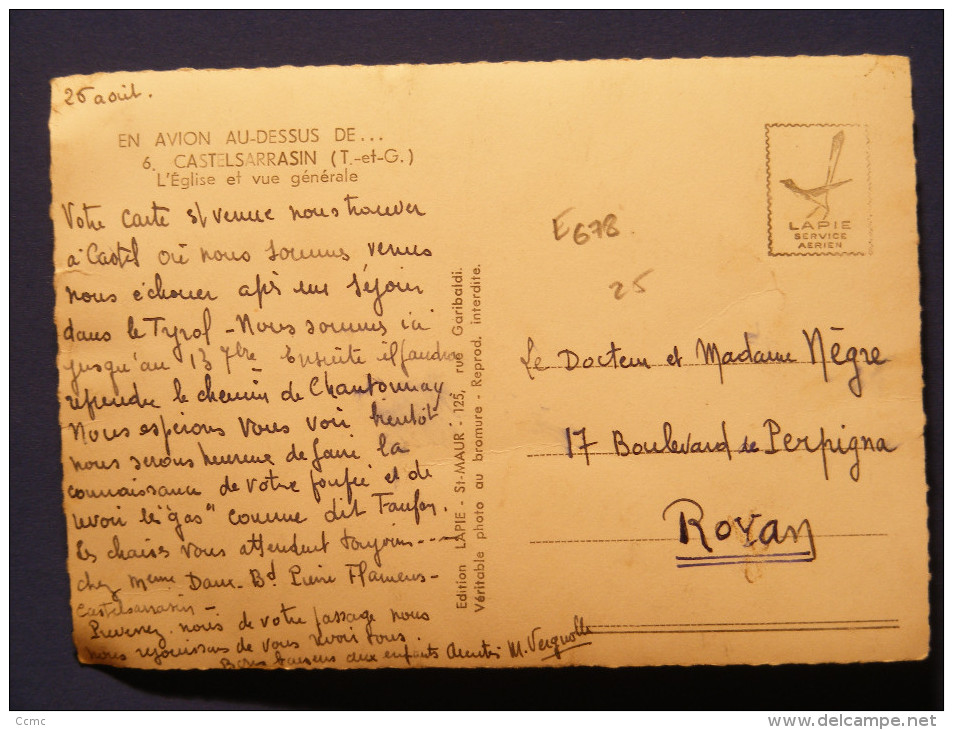 26 août.
EN AVION AU-DESSUS DE...
6. CASTELSARRASIN (T.-et-G.)
L'Église et vue générale
Votre carte est venue nous trouver
à Castel où nous sommes venus
nous échouer après un séjour
dans le Tyrol - Nous sommes ici
jusqu'au 13 7bre Ensuite il faudra
reprendre le chemin de Chantonnay
Nous espérions vous voir bientôt
nous serons heureux de faire la
connaissance de votre poupée et de
revoir le "gas" comme dit Fanfan.
Les chaises vous attendent toujours ----
chez Meme Daur - Bd Pierre Flamens -
Castelsarrasin -
Prévenez nous de votre passage nous
nous réjouissons de vous revoir tous.
Bons baisers aux enfants Amitiés M. Vergnolle
Edition LAPIE - St-MAUR - 125, rue Garibaldi.
Véritable photo au bromure - Reprod. interdite.
LAPIE
SERVICE
AERIEN
E678
25
Le Docteur et Madame Nègre
17 Boulevard de Perpigna
ROYAN
Ccmc
www.delcampe.net